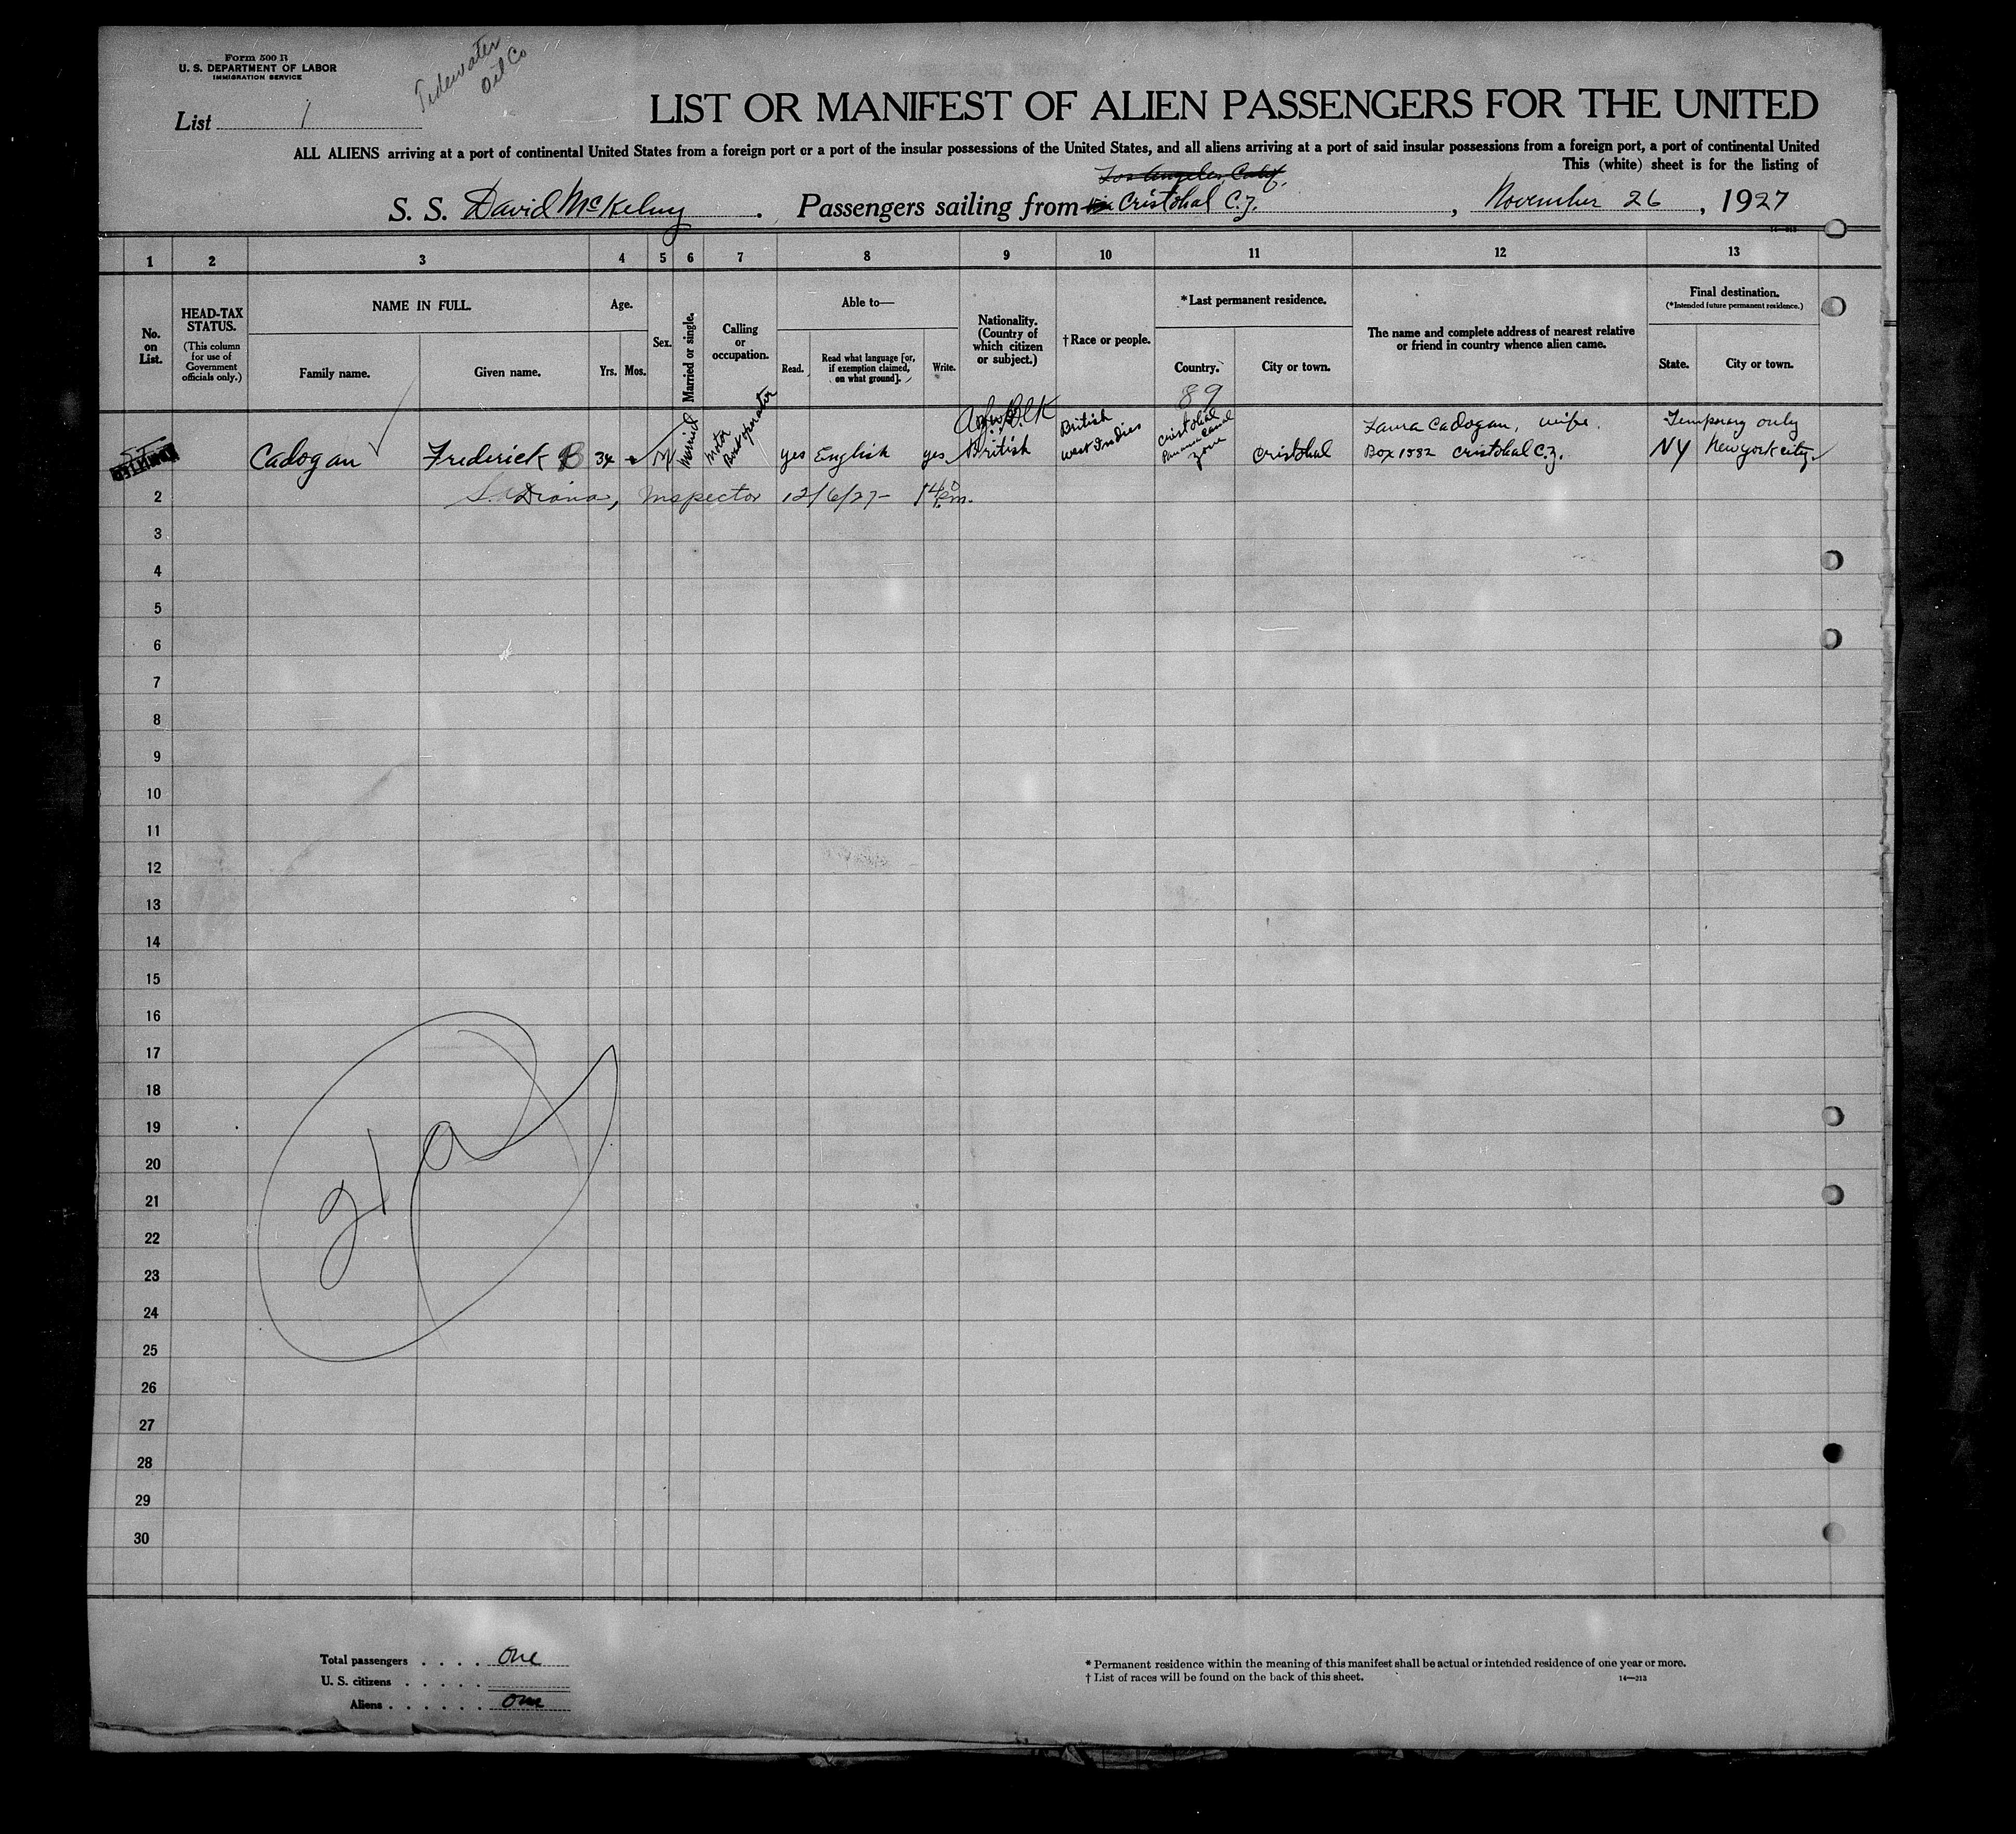 Form 500 B
U. S. DEPARTMENT OF LABOR
IMMIGRATION SERVICE
Tidewater
Oil Co
List 1
LIST OR MANIFEST OF ALIEN PASSENGERS FOR THE UNITED
ALL ALIENS arriving at a port of continental United States from a foreign port or a port of the insular possessions of the United States, and all aliens arriving at a port of said insular possessions from a foreign port, a port of continental United
This (white) sheet is for the listing of
Los Angeles, Calif.
S. S. David McKelvy . Passengers sailing from Cristobal C.Z. , November 26 , 1927
14—213
1 2 3 4 5 6 7 8 9 10 11 12 13
No. on List.
HEAD-TAX STATUS.
(This column for use of Government officials only.)
NAME IN FULL.
Family name.
Given name.
Age.
Yrs. Mos.
Sex.
Married or single.
Calling or occupation.
Able to—
Read.
Read what language [or, if exemption claimed, on what ground].
Write.
Nationality. (Country of which citizen or subject.)
† Race or people.
* Last permanent residence.
Country.
City or town.
The name and complete address of nearest relative or friend in country whence alien came.
Final destination.
(*Intended future permanent residence.)
State.
City or town.
89
Cadogan Frederick B 34 M Married Motor Boat operator yes English yes British British West Indies Cristobal Panama Canal Zone Cristobal Laura Cadogan, wife. Box 1582 Cristobal C.Z. Temporary only NY New York city
2 Inspector 12/6/27-
3
4
5
6
7
8
9
10
11
12
13
14
15
16
17
18
19
20
21
22
23
24
25
26
27
28
29
30
Total passengers . . . . one
U. S. citizens . . . . .
Aliens . . . . . . one
* Permanent residence within the meaning of this manifest shall be actual or intended residence of one year or more.
† List of races will be found on the back of this sheet. 14—213